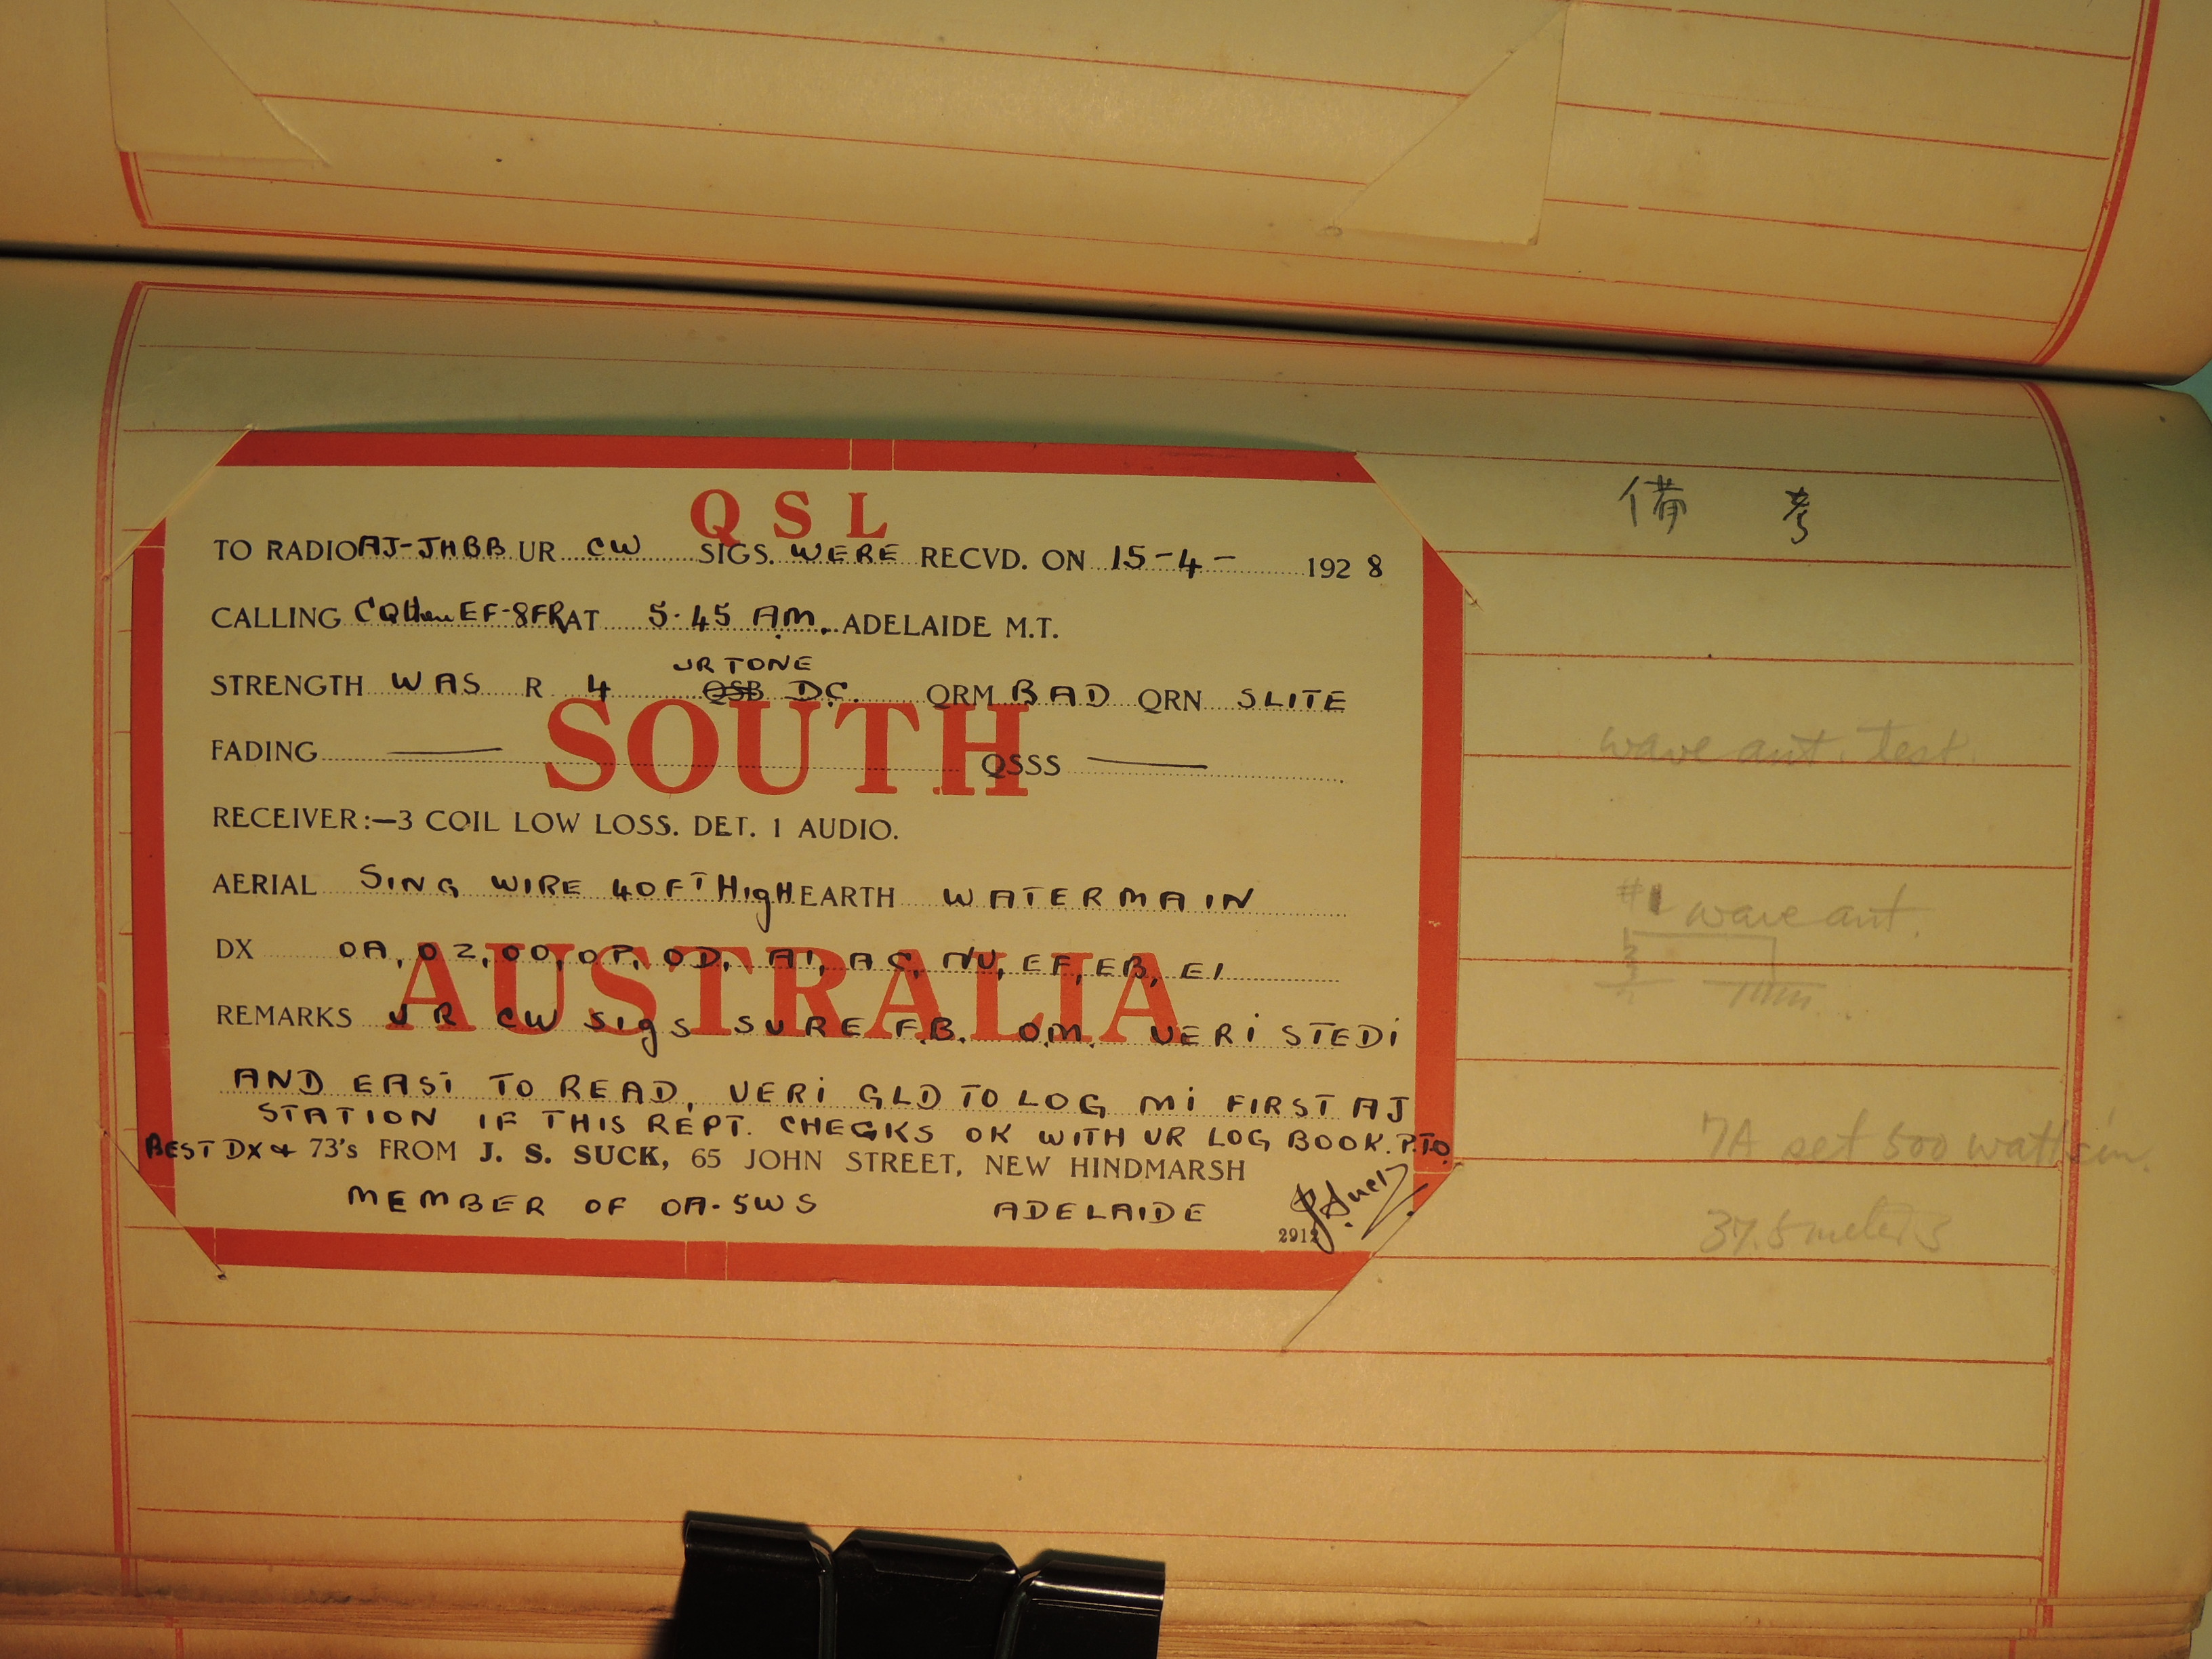 QSL
TO RADIO AJ-JHBB UR CW SIGS. WERE RECVD. ON 15-4- 1928
CALLING CQ then EF-8FR AT 5.45 A.M. ADELAIDE M.T.
UR TONE
STRENGTH WAS R 4 QSB D.C. QRM BAD QRN SLITE
SOUTH
FADING — QSSS —
RECEIVER:—3 COIL LOW LOSS. DET. 1 AUDIO.
AERIAL SING WIRE 40FT HigH EARTH WATERMAIN
DX OA, OZ, OO, OP, OD, AI, AC, NU, EF, EB, EI
AUSTRALIA
REMARKS UR CW SigS SURE F.B. O.M. VERi STEDi
AND EASi TO READ, VERi GLD TO LOG Mi FIRST AJ
STATION IF THIS REPT. CHECKS OK WITH UR LOG BOOK. P.T.O.
BEST DX & 73's FROM J. S. SUCK, 65 JOHN STREET, NEW HINDMARSH
MEMBER OF OA-5WS ADELAIDE
2912
備 考
wave ant. test.
#1 wave ant.
7A set 500 watts in.
37.5 meters